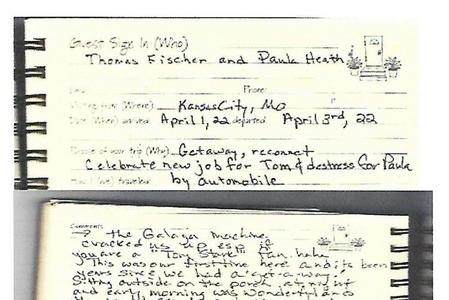 Guest Sign In (Who)
Thomas Fischer and Paula Heath
Phone:
Visiting from (Where) Kansas City, Mo
Date (When) arrived April 1, 22 departed April 3rd, 22
Purpose of your trip (Why) Getaway, reconnect
Celebrate new job for Tom & destress for Paula
How I (we) traveled by automobile
Comments
→ the Galaga machine
cracked us up, esp if
you are a "Tony Stark" fan. haha
This was our first time here and its been
years since we had a "get-a-way".
Sitting outside on the porch at night
and early morning was wonderful